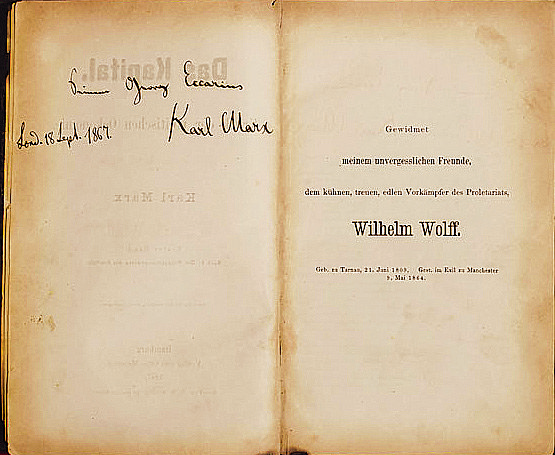 Seinem Georg Eccarius
Karl Marx
Lond. 18 Sept. 1867.
Gewidmet
meinem unvergesslichen Freunde,
dem kühnen, treuen, edlen Vorkämpfer des Proletariats,
Wilhelm Wolff.
Geb. zu Tarnau, 21. Juni 1809. Gest. im Exil zu Manchester
9. Mai 1864.